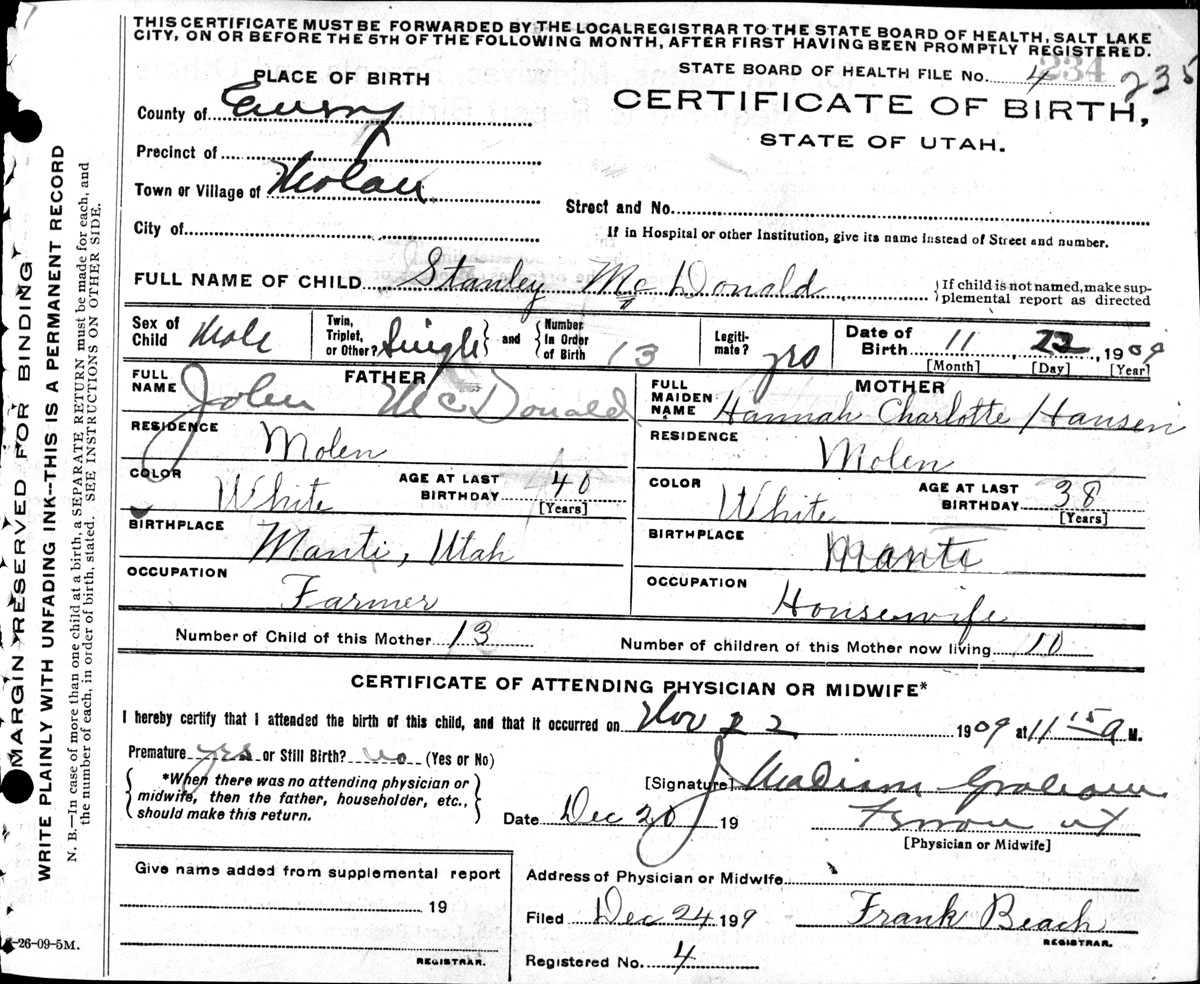 THIS CERTIFICATE MUST BE FORWARDED BY THE LOCAL REGISTRAR TO THE STATE BOARD OF HEALTH, SALT LAKE
CITY, ON OR BEFORE THE 5TH OF THE FOLLOWING MONTH, AFTER FIRST HAVING BEEN PROMPTLY REGISTERED.
STATE BOARD OF HEALTH FILE No. 4 234 235
PLACE OF BIRTH
CERTIFICATE OF BIRTH,
STATE OF UTAH.
County of Emery
Precinct of
Town or Village of Molen
Street and No.
City of
If in Hospital or other Institution, give its name instead of Street and number.
FULL NAME OF CHILD Stanley McDonald
If child is not named, make sup-
plemental report as directed
Sex of Child Male
Twin, Triplet, or Other? Single and Number In Order of Birth 13
Legiti-mate? yes
Date of Birth 11, 22, 1909
[Month] [Day] [Year]
FATHER
FULL NAME John McDonald
RESIDENCE Molen
COLOR White AGE AT LAST BIRTHDAY 40 [Years]
BIRTHPLACE Manti, Utah
OCCUPATION Farmer
MOTHER
FULL MAIDEN NAME Hannah Charlotte Hansen
RESIDENCE Molen
COLOR White AGE AT LAST BIRTHDAY 38 [Years]
BIRTHPLACE Manti
OCCUPATION Housewife
Number of Child of this Mother 13 Number of children of this Mother now living 10
CERTIFICATE OF ATTENDING PHYSICIAN OR MIDWIFE*
I hereby certify that I attended the birth of this child, and that it occurred on Nov 22 1909 at 11 15 a M.
Premature yes or Still Birth? no (Yes or No)
*When there was no attending physician or
midwife, then the father, householder, etc.,
should make this return.
[Signature] J Graham
Date Dec 20 19 Ferron ut
[Physician or Midwife]
Give name added from supplemental report
19
REGISTRAR.
Address of Physician or Midwife
Filed Dec 24 199 Frank Beach
REGISTRAR.
Registered No. 4
MARGIN RESERVED FOR BINDING
WRITE PLAINLY WITH UNFADING INK—THIS IS A PERMANENT RECORD
N. B.—In case of more than one child at a birth, a SEPARATE RETURN must be made for each, and
the number of each, in order of birth, stated. SEE INSTRUCTIONS ON OTHER SIDE.
-26-09-5M.